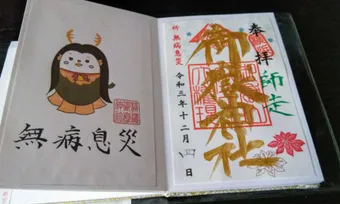 無病息災
奉拝
師走
御嶽神社
祈 無病息災
令和三年十二月 四 日